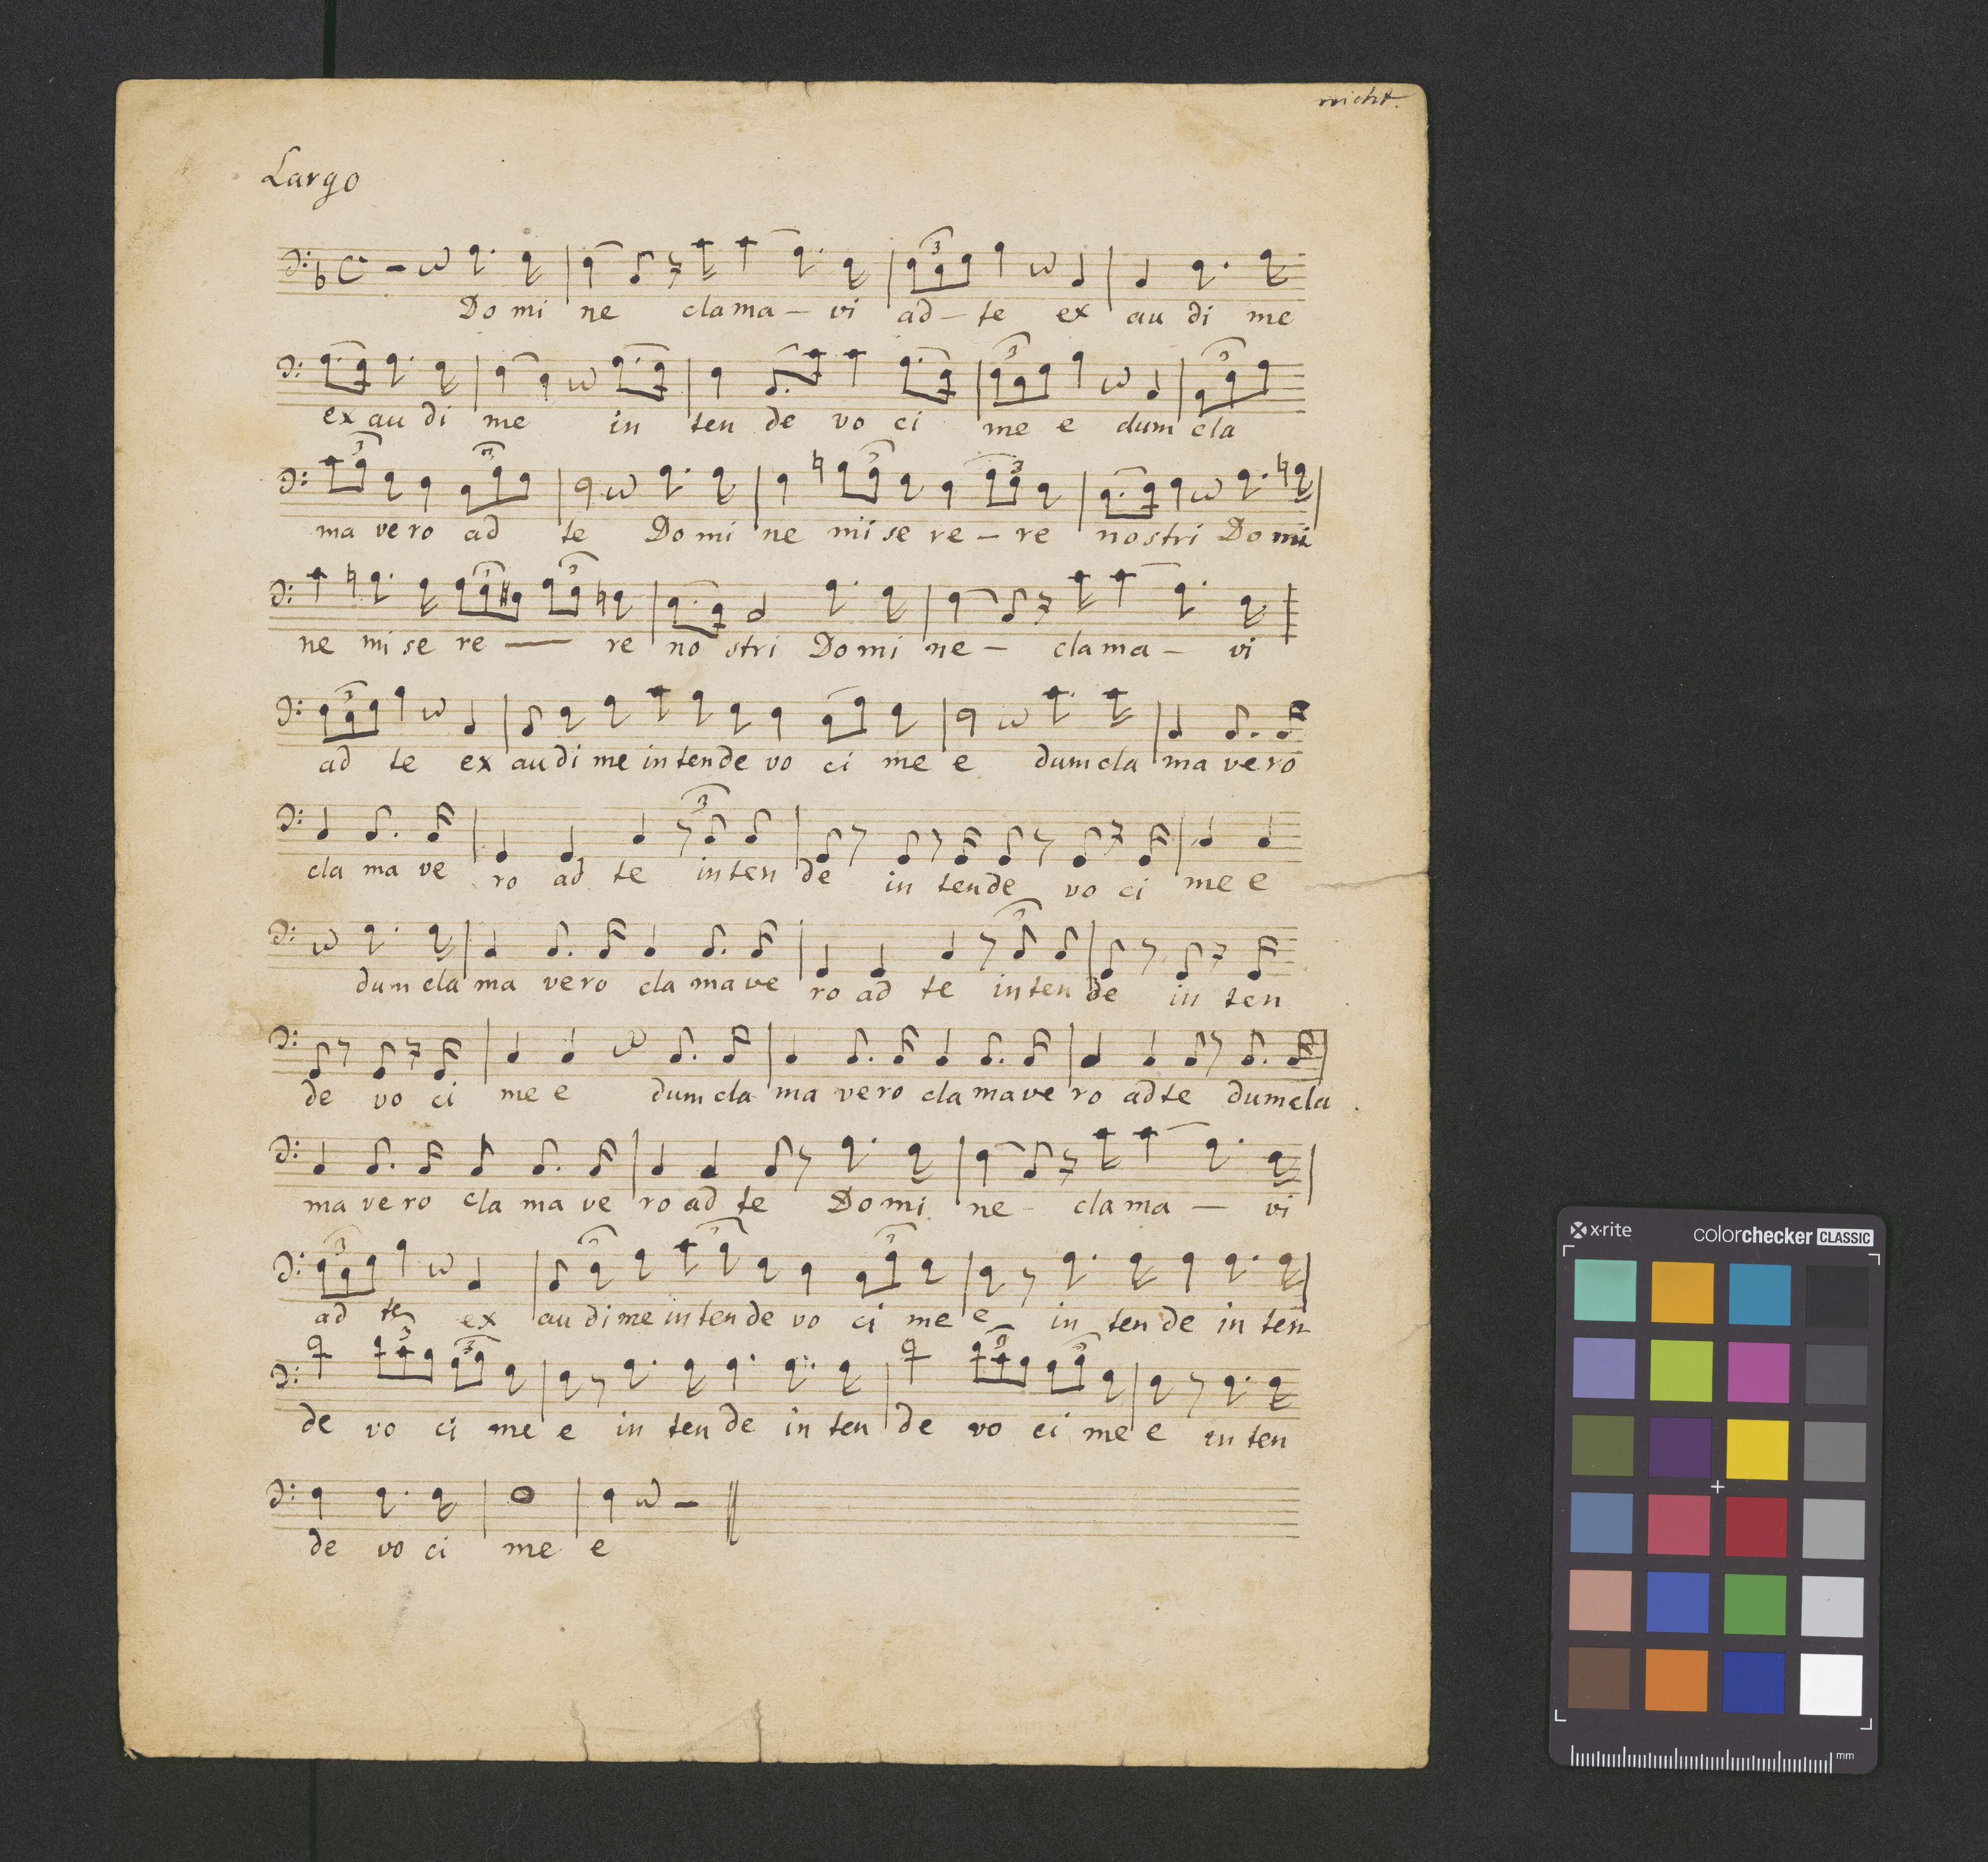 nicht.
Largo
Do mi ne clama – vi ad – te ex au di me
ex au di me in ten de vo ci me e dum cla
ma vero ad te Do mi ne mi se re – re nostri Do mi
ne mi se re — re no stri Do mi ne – clama – vi
ad te ex au di me in ten de vo ci me e dum cla ma vero
cla ma ve ro ad te in ten de in ten de vo ci me e
dum cla ma vero cla ma ve ro ad te in ten de in ten
de vo ci me e dum cla ma vero cla ma ve ro ad te dum cla
ma ve ro cla ma ve ro ad te Do mi ne – clama – vi
ad te ex au di me in ten de vo ci me e in ten de in ten
de vo ci me e in ten de in ten de vo ci me e in ten
de vo ci me e
x·rite colorchecker CLASSIC
mm